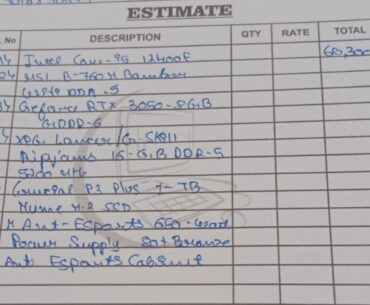 ESTIMATE
. No DESCRIPTION QTY RATE TOTAL
Intel Core i5 12400F 60,300
MSI B-760M Bomber
DDR.5
Geforce RTX 3050-8GB
GDDR-6
XPG Lancer/G-Skill
Ripjaws 16-GB DDR-5
5200 MHz
Crucial P3 Plus 1-TB
Nvme M.2 SSD
Ant-Esports 650-Watt
Power Supply 80+ Bronze
Ant Esports Cabinet